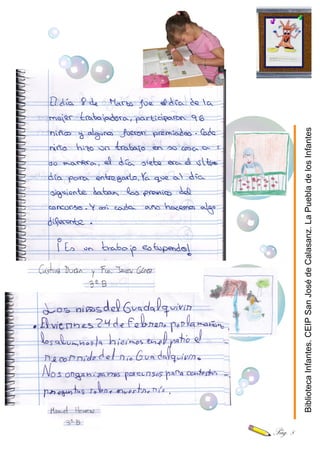 El día 8 de Marzo fue el día de la
mujer trabajadora, participaron 98
niños y algunos fueron premiados. Cada
niño hizo un trabajo en su casa a
su manera, el día siete era el último
día para entregarlo. Ya que al día
siguiente daban los premios del
concurso. Y mi cada año hacemos algo
diferente.
¡Es un trabajo estupendo!
y Fco. Javier
3º B
Los niños del Guadalquivir
El viernes 24 de Febrero, por la mañana,
los alumnos/a hicimos en el patio el
recorrido del río Guadalquivir.
Nos organizamos para contestar
preguntas sobre nuestro río.
Manuel
3º B
Biblioteca Infantes. CEIP San José de Calasanz. La Puebla de los Infantes
Pág. 8